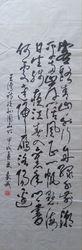 客路青山外行舟绿水前潮
平两岸阔风正一帆悬海
日生残夜江春入旧年乡
书何处达归雁洛阳边
王湾诗次北固山下